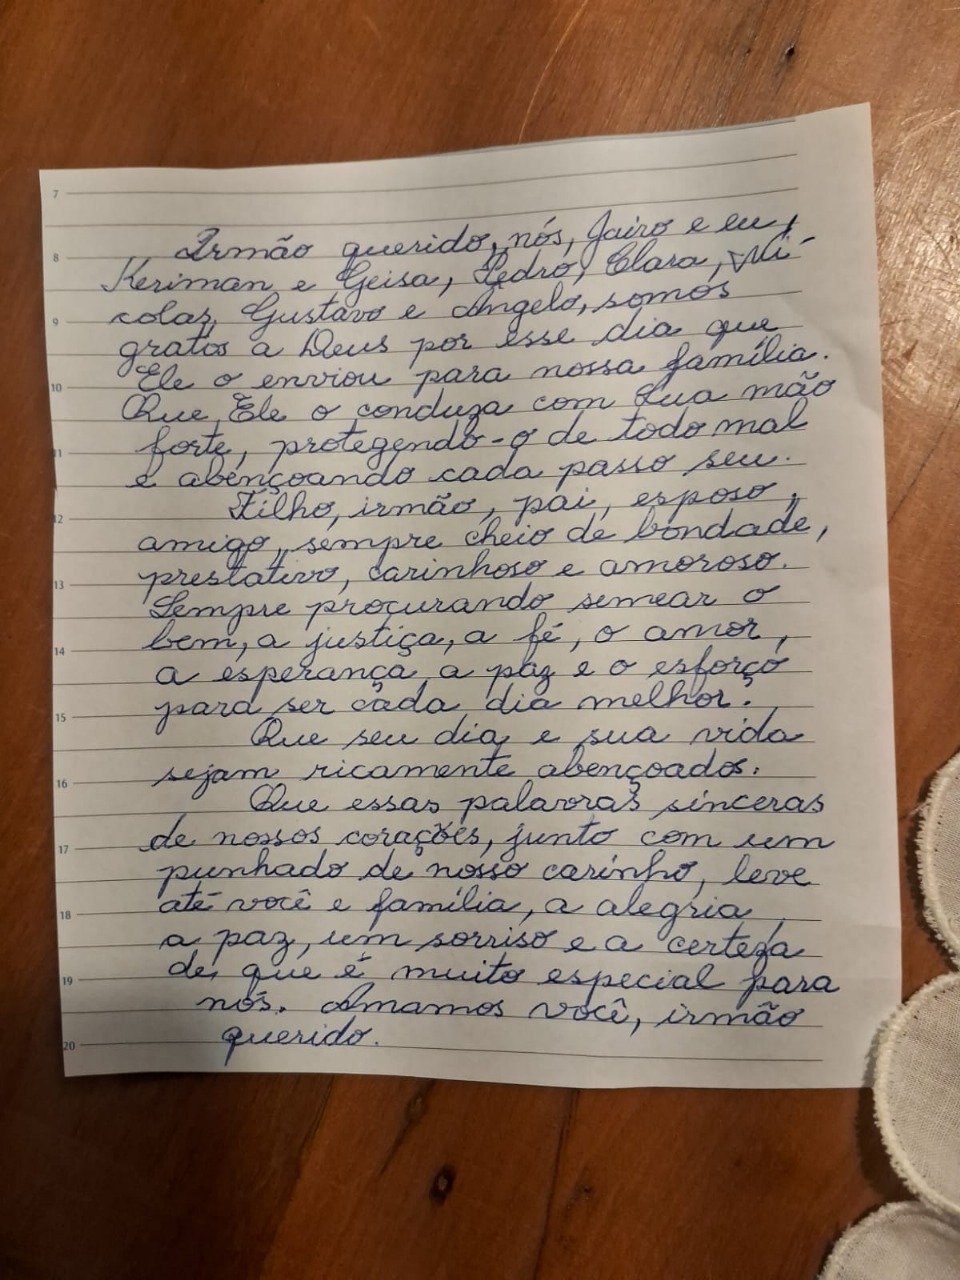 7
8
9
10
11
12
13
14
15
16
17
18
19
20
Irmão querido, nós, Jairo e eu,
Keriman e Geisa, Pedro, Clara, Ni-
colas, Gustavo e Angelo, somos
gratos a Deus por esse dia que
Ele o enviou para nossa família.
Que Ele o conduza com Sua mão
forte, protegendo-o de todo mal
e abençoando cada passo seu.
Filho, irmão, pai, esposo,
amigo, sempre cheio de bondade,
prestativo, carinhoso e amoroso.
Sempre procurando semear o
bem, a justiça, a fé, o amor,
a esperança, a paz e o esforço
para ser cada dia melhor.
Que seu dia e sua vida
sejam ricamente abençoados.
Que essas palavras sinceras
de nossos corações, junto com um
punhado de nosso carinho, leve
até você e família, a alegria,
a paz, um sorriso e a certeza
de que é muito especial para
nós. Amamos você, irmão
querido.